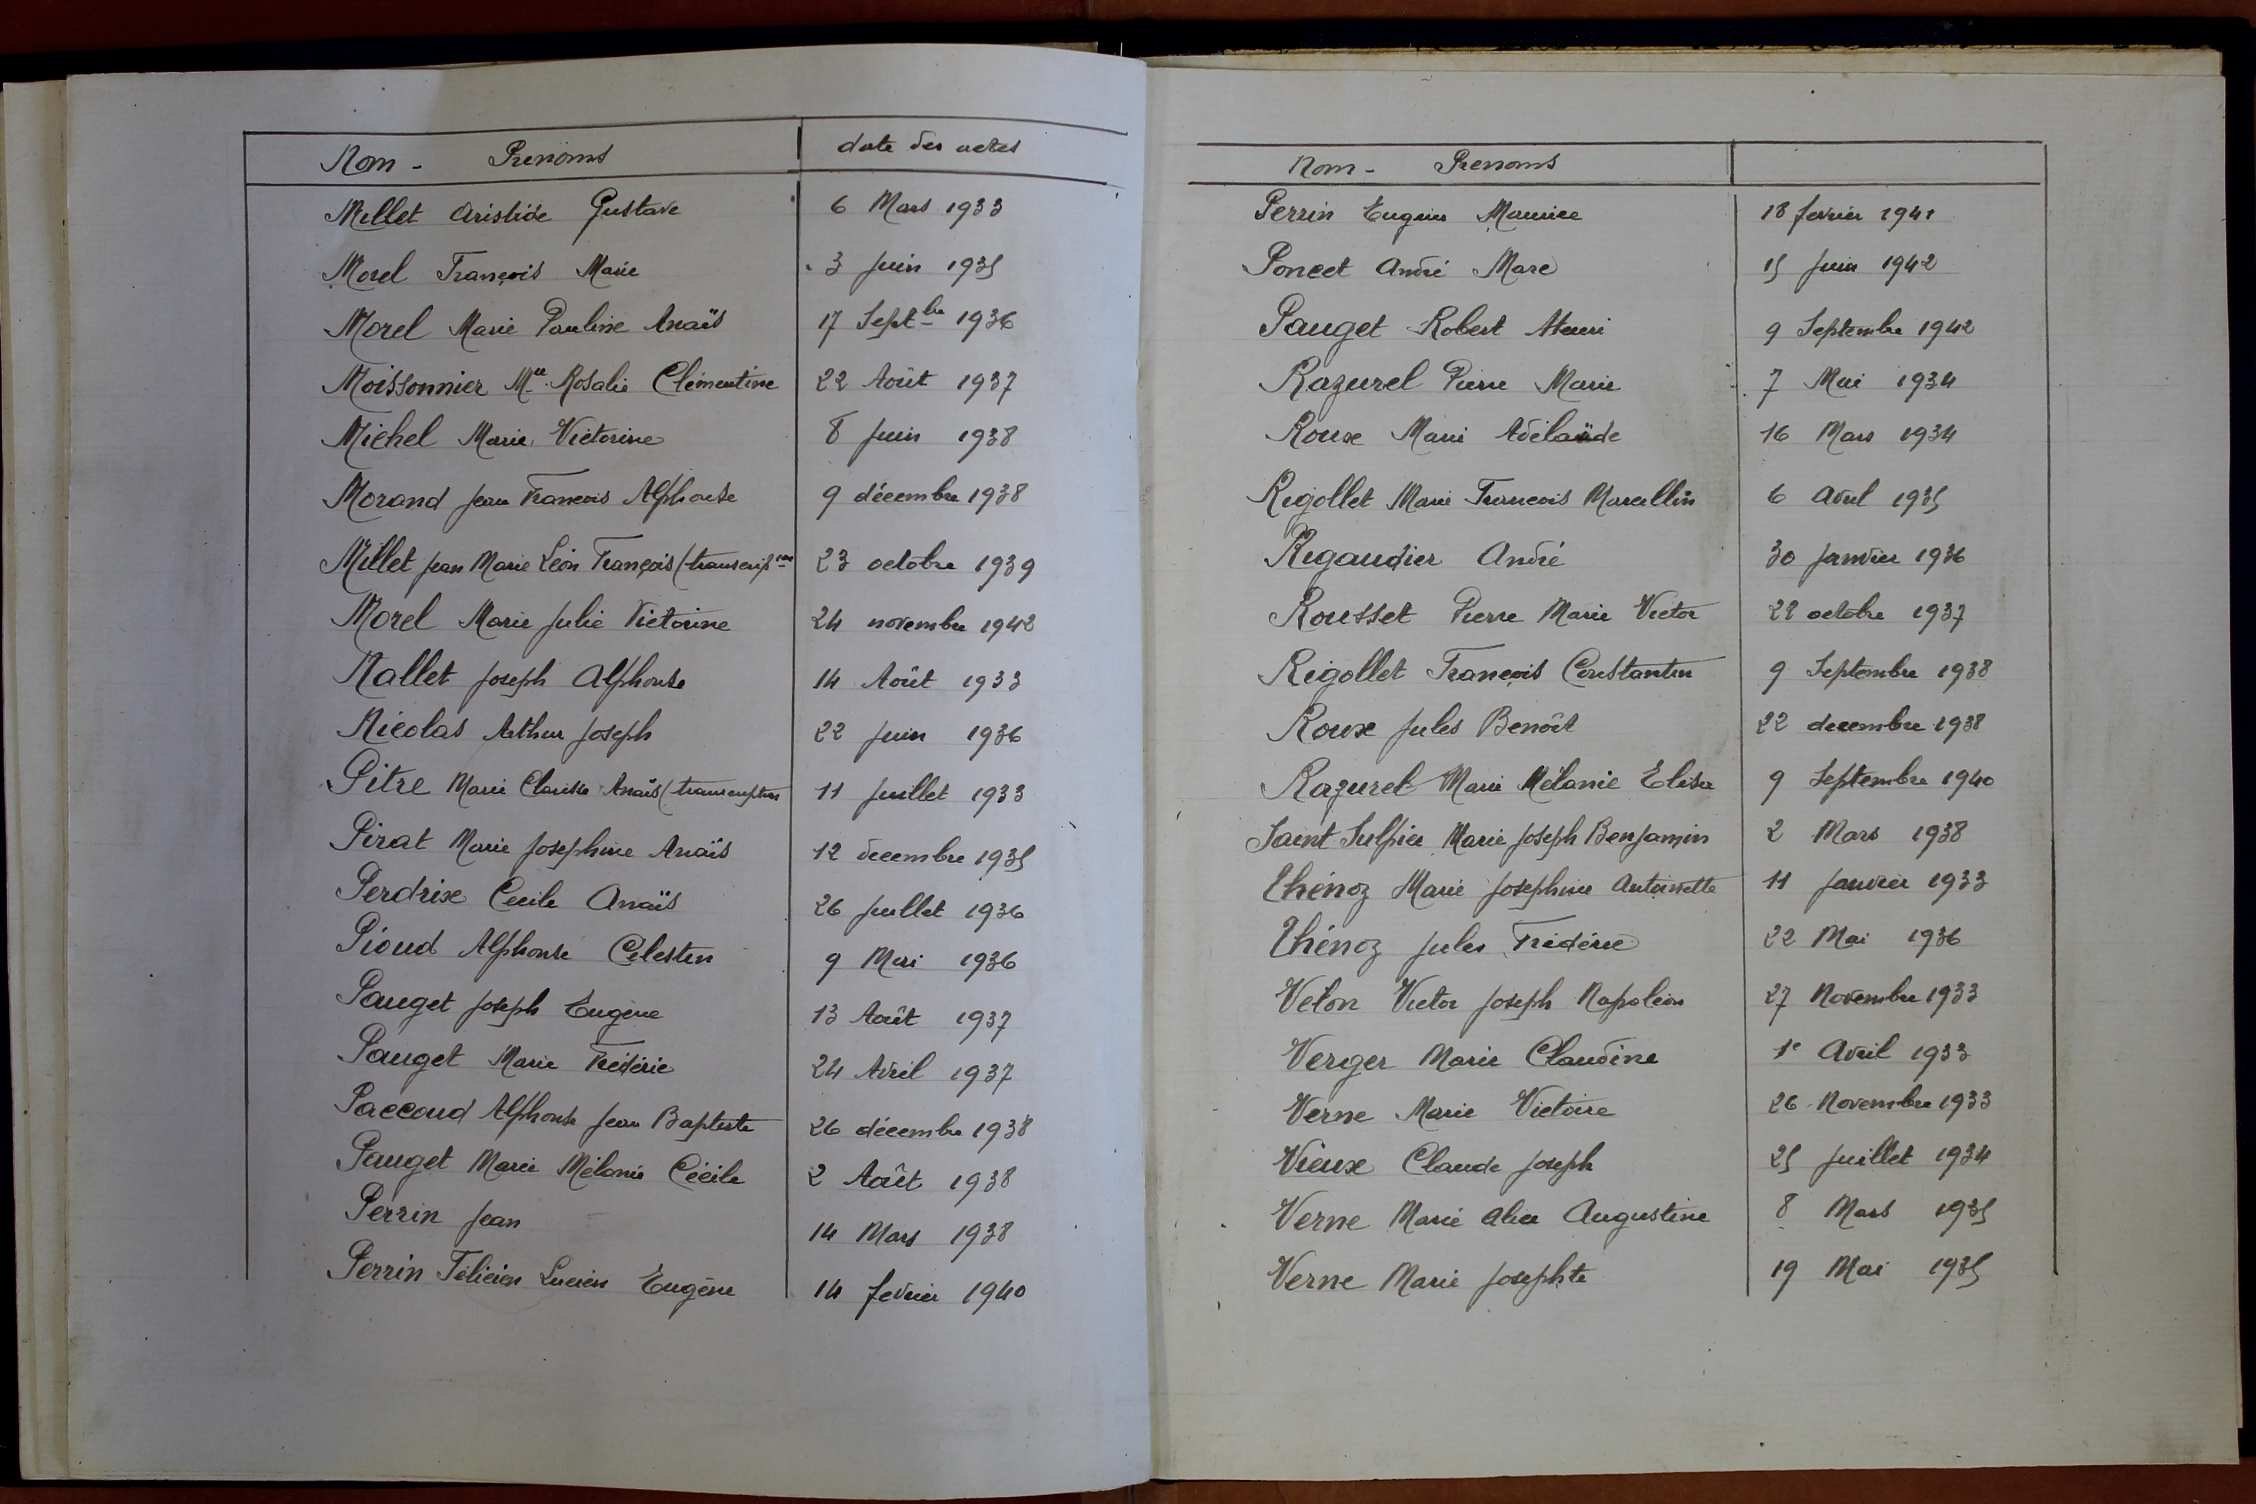 Nom - Prenoms date des actes
Millet Aristide Gustave 6 Mars 1933
Morel François Marie 3 Juin 1935
Morel Marie Pauline Anaïs 17 Septbre 1936
Moissonnier Mie Rosalie Clémentine 22 Août 1937
Michel Marie Victorine 8 Juin 1938
Morand Jean Francois Alphonse 9 décembre 1938
Millet Jean Marie Léon François (transcript 23 octobre 1939
Morel Marie Julie Victorine 24 novembre 1942
Nallet Joseph Alphonse 14 Août 1933
Nicolas Arthur Joseph 22 Juin 1936
Pitre Marie Clarisse Anaïs (transcription 11 Juillet 1933
Pirat Marie Josephine Anaïs 12 decembre 1935
Perdrix Cecile Anaïs 26 Juillet 1936
Pioud Alphonse Célestin 9 Mai 1936
Pauget Joseph Eugène 13 Août 1937
Pauget Marie Frédéric 24 Avril 1937
Paccoud Alphonse Jean Baptiste 26 décembre 1938
Pauget Marie Mélanie Cécile 2 Août 1938
Perrin Jean 14 Mars 1938
Perrin Félicien Lucien Eugène 14 fevrier 1940
Nom - Prenoms
Perrin Eugène Maurice 18 fevrier 1941
Poncet André Marc 15 Juin 1942
Pauget Robert Henri 9 Septembre 1942
Razurel Pierre Marie 7 Mai 1934
Roux Marie Adélaïde 16 Mars 1934
Rigollet Marie Francois Marcellin 6 Avril 1935
Rigaudier André 30 Janvier 1936
Rousset Pierre Marie Victor 22 octobre 1937
Rigollet François Constantin 9 Septembre 1938
Roux Jules Benoît 22 decembre 1938
Razurel Marie Mélanie Elisa 9 Septembre 1940
Saint Sulpice Marie Joseph Benjamin 2 Mars 1938
Thénoz Marie Josephine Antoinette 11 Janvier 1933
Thénoz Jules Frédéric 22 Mai 1936
Velon Victor Joseph Napoléon 27 Novembre 1933
Verger Marie Claudine 1e Avril 1933
Verne Marie Victoire 26 Novembre 1933
Vieux Claude Joseph 25 Juillet 1934
Verne Marie Alice Augustine 8 Mars 1935
Verne Marie Josephte 19 Mai 1935